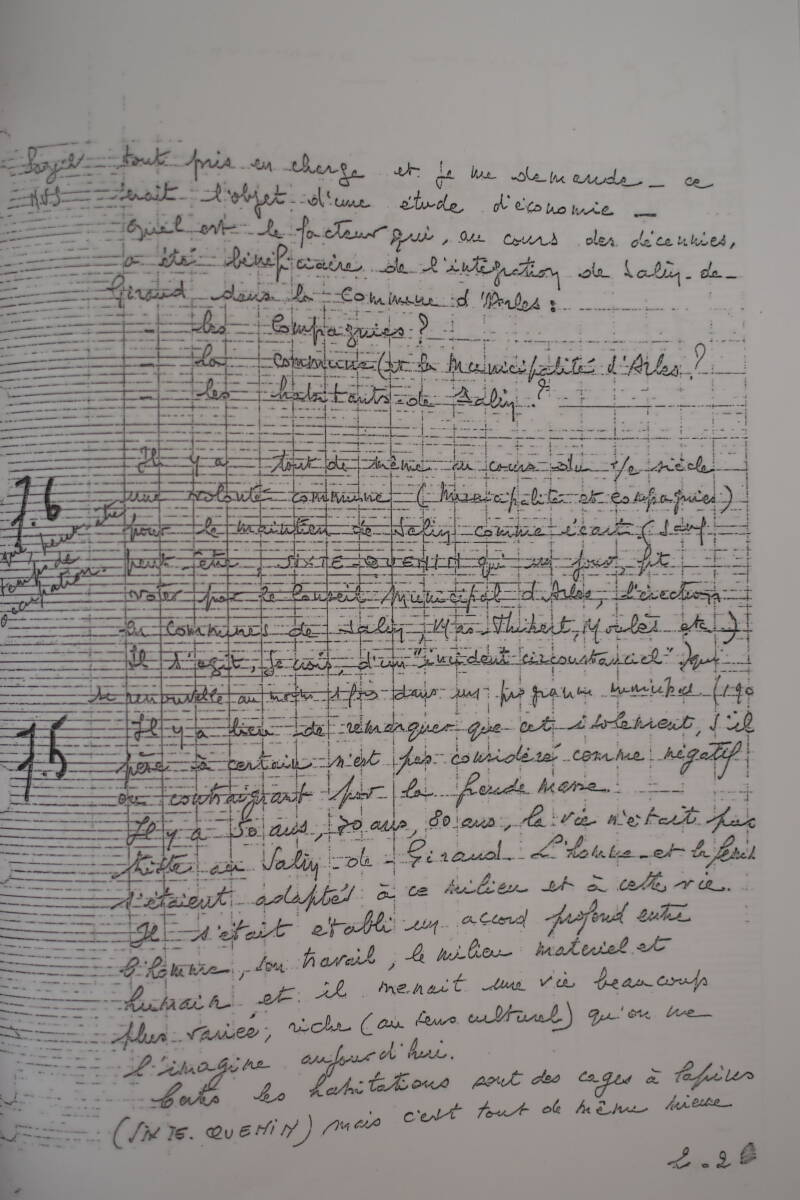 tout pris en charge et je me demande - ce
serait l'objet d'une étude d'économie -
quel est le facteur qui, au cours des décennies,
a été bénéficiaire de l'intégration de Salin-de-
Giraud dans la Commune d'Arles:
- les Compagnies?
- la commune (et la Municipalité d'Arles?
- les habitants de Salin?
Il y a tout de même au cours du siècle
7.6
une volonté commune (Municipalité et Compagnies)
pour le maintien de Salin comme écart (sauf
qui, peut-être,
temps de
occupation.
peut-être, SIXTE-QUENIN qui un jour, fit
voter par le Conseil Municipal d'Arles, l'érection
en communes de Salin, Mas-Thibert, Moulès etc)
Il s'agit, je crois, d'un "incident circonstanciel") qui
se renouvelle au moins 1 fois dans un programme municipal (190
7.5
Il y a lieu de remarquer que cet isolement, s'il
pèse à certain n'est pas considéré comme négatif
ou contraignant par la grande masse.
Il y a 50 ans, 70 ans, 80 ans, la vie n'était pas
triste au Salin-de-Giraud. L'homme et la fem
s'étaient adaptés à ce milieu et à cette vie.
Il s'était établi un accord profond entre
l'homme, son travail, le milieu matériel et
humain et il menait une vie beaucoup
plus variée, riche (au sens culturel) qu'on ne
l'imagine aujourd'hui.
Certes les habitations sont des cages à lapins
(SIXTE-QUENIN) mais c'est tout de même mieux
2